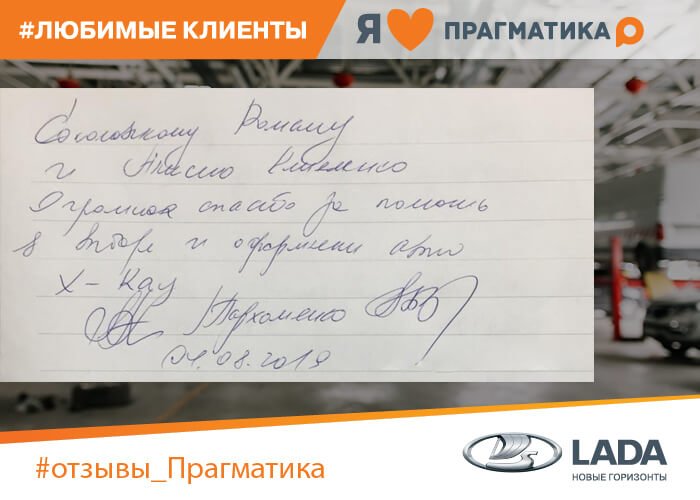 #ЛЮБИМЫЕ КЛИЕНТЫ
Я ПРАГМАТИКА
Роману
и Клименко
Огромное спасибо за помощь
в выборе и оформлении авто
X-Ray
Пархоменко
04.08.2019
#отзывы_Прагматика
LADA
НОВЫЕ ГОРИЗОНТЫ